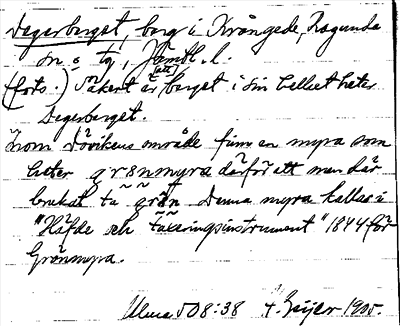 Degerberget, berg i Krångede, Ragunda
sn o tg, Jämtl. l.
(forts.) Säkert är (att) berget i sin helhet heter
Degerberget.
Inom Dövikens område finns en myra som
heter grenmyra därför att man där
brukat ta grän. Denna myra kallas i
"Häfde och taxeringsinstrument" 1844 för
Grönmyra.
508:38 Geijer 1905.